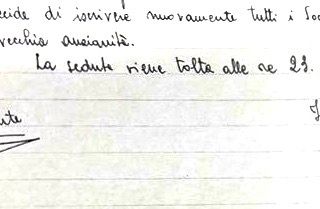 cide di iscrivere nuovamente tutti i Soc
vecchia anzianità.
La seduta viene tolta alle ore 23.
nte